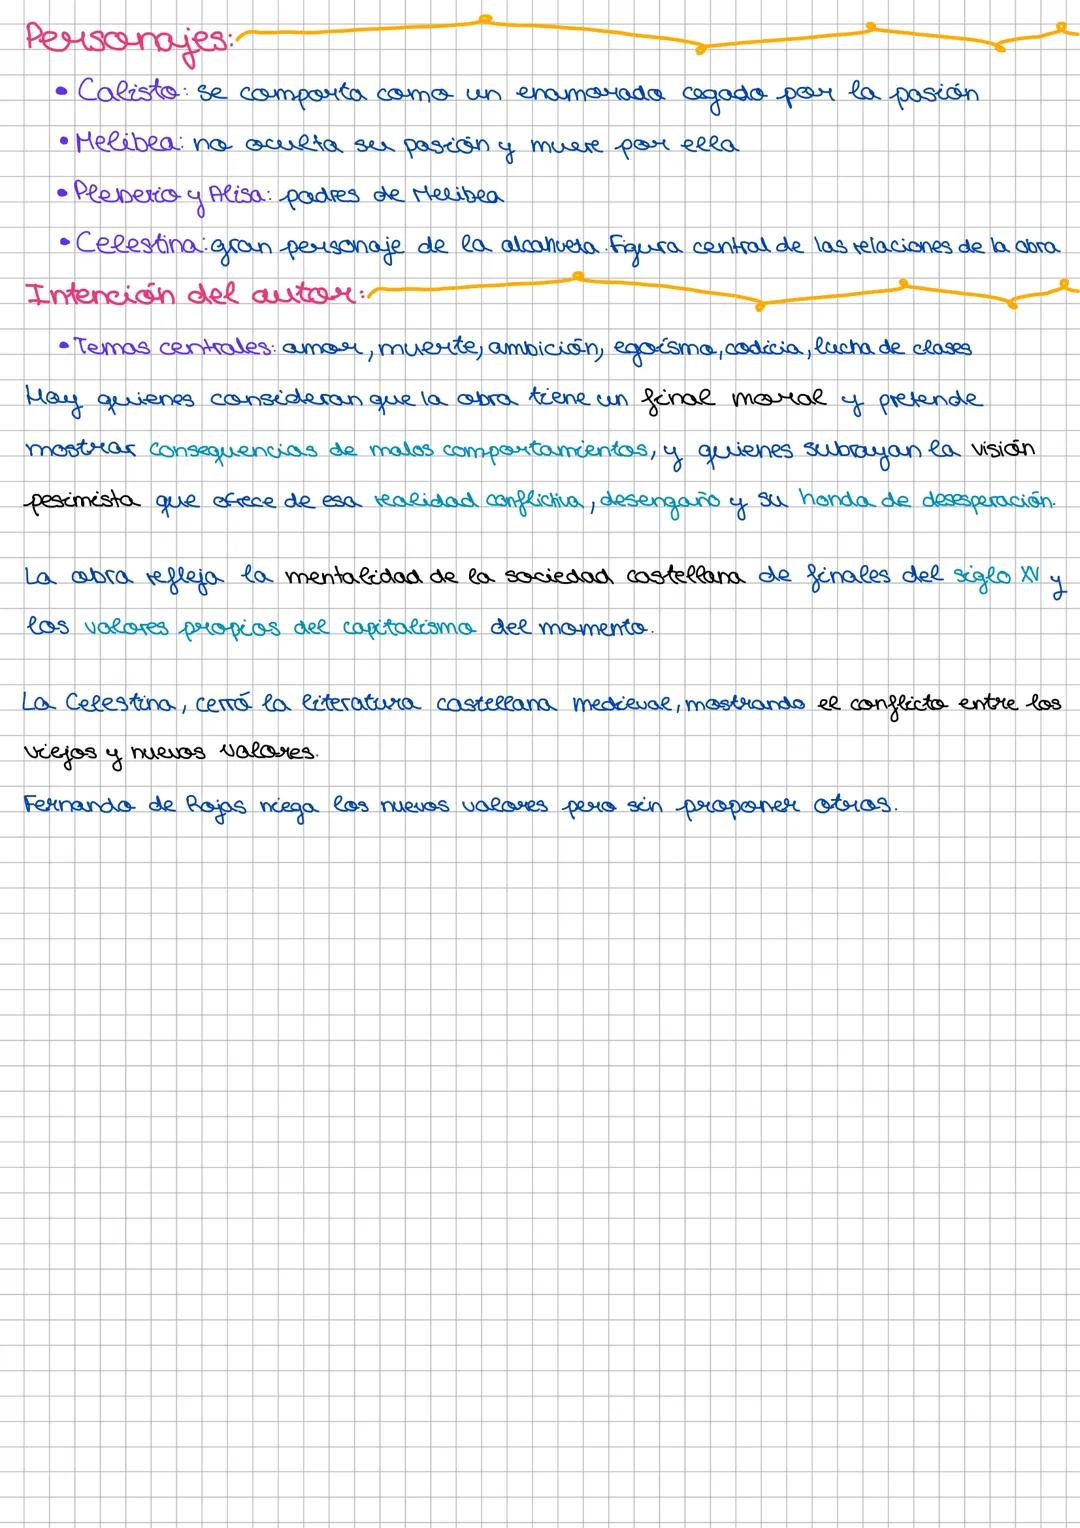 Personajes:
• Calisto: se comporta como un enamorado cegado por la pasión
• Melibea: no oculta su pasión y muere por ella
• Pleberio y Alisa: padres de Melibea
• Celestina: gran personaje de la alcahueta. Figura central de las relaciones de la obra
Intención del autor:
• Temas centrales: amor, muerte, ambición, egoísmo, codicia, lucha de clases
Hay quienes consideran que la obra tiene un final moral y pretende
mostrar consequencias de malos comportamientos, y quienes subrayan la visión
pesimista que ofrece de esa realidad conflictiva, desengaño y su honda de desesperación.
La obra refleja la mentalidad de la sociedad castellana de finales del siglo XV y
los valores propios del capitalismo del momento.
La Celestina, cerró la literatura castellana medieval, mostrando el conflicto entre los
viejos y nuevos valores.
Fernando de Rojas niega los nuevos valores pero sin proponer otros.